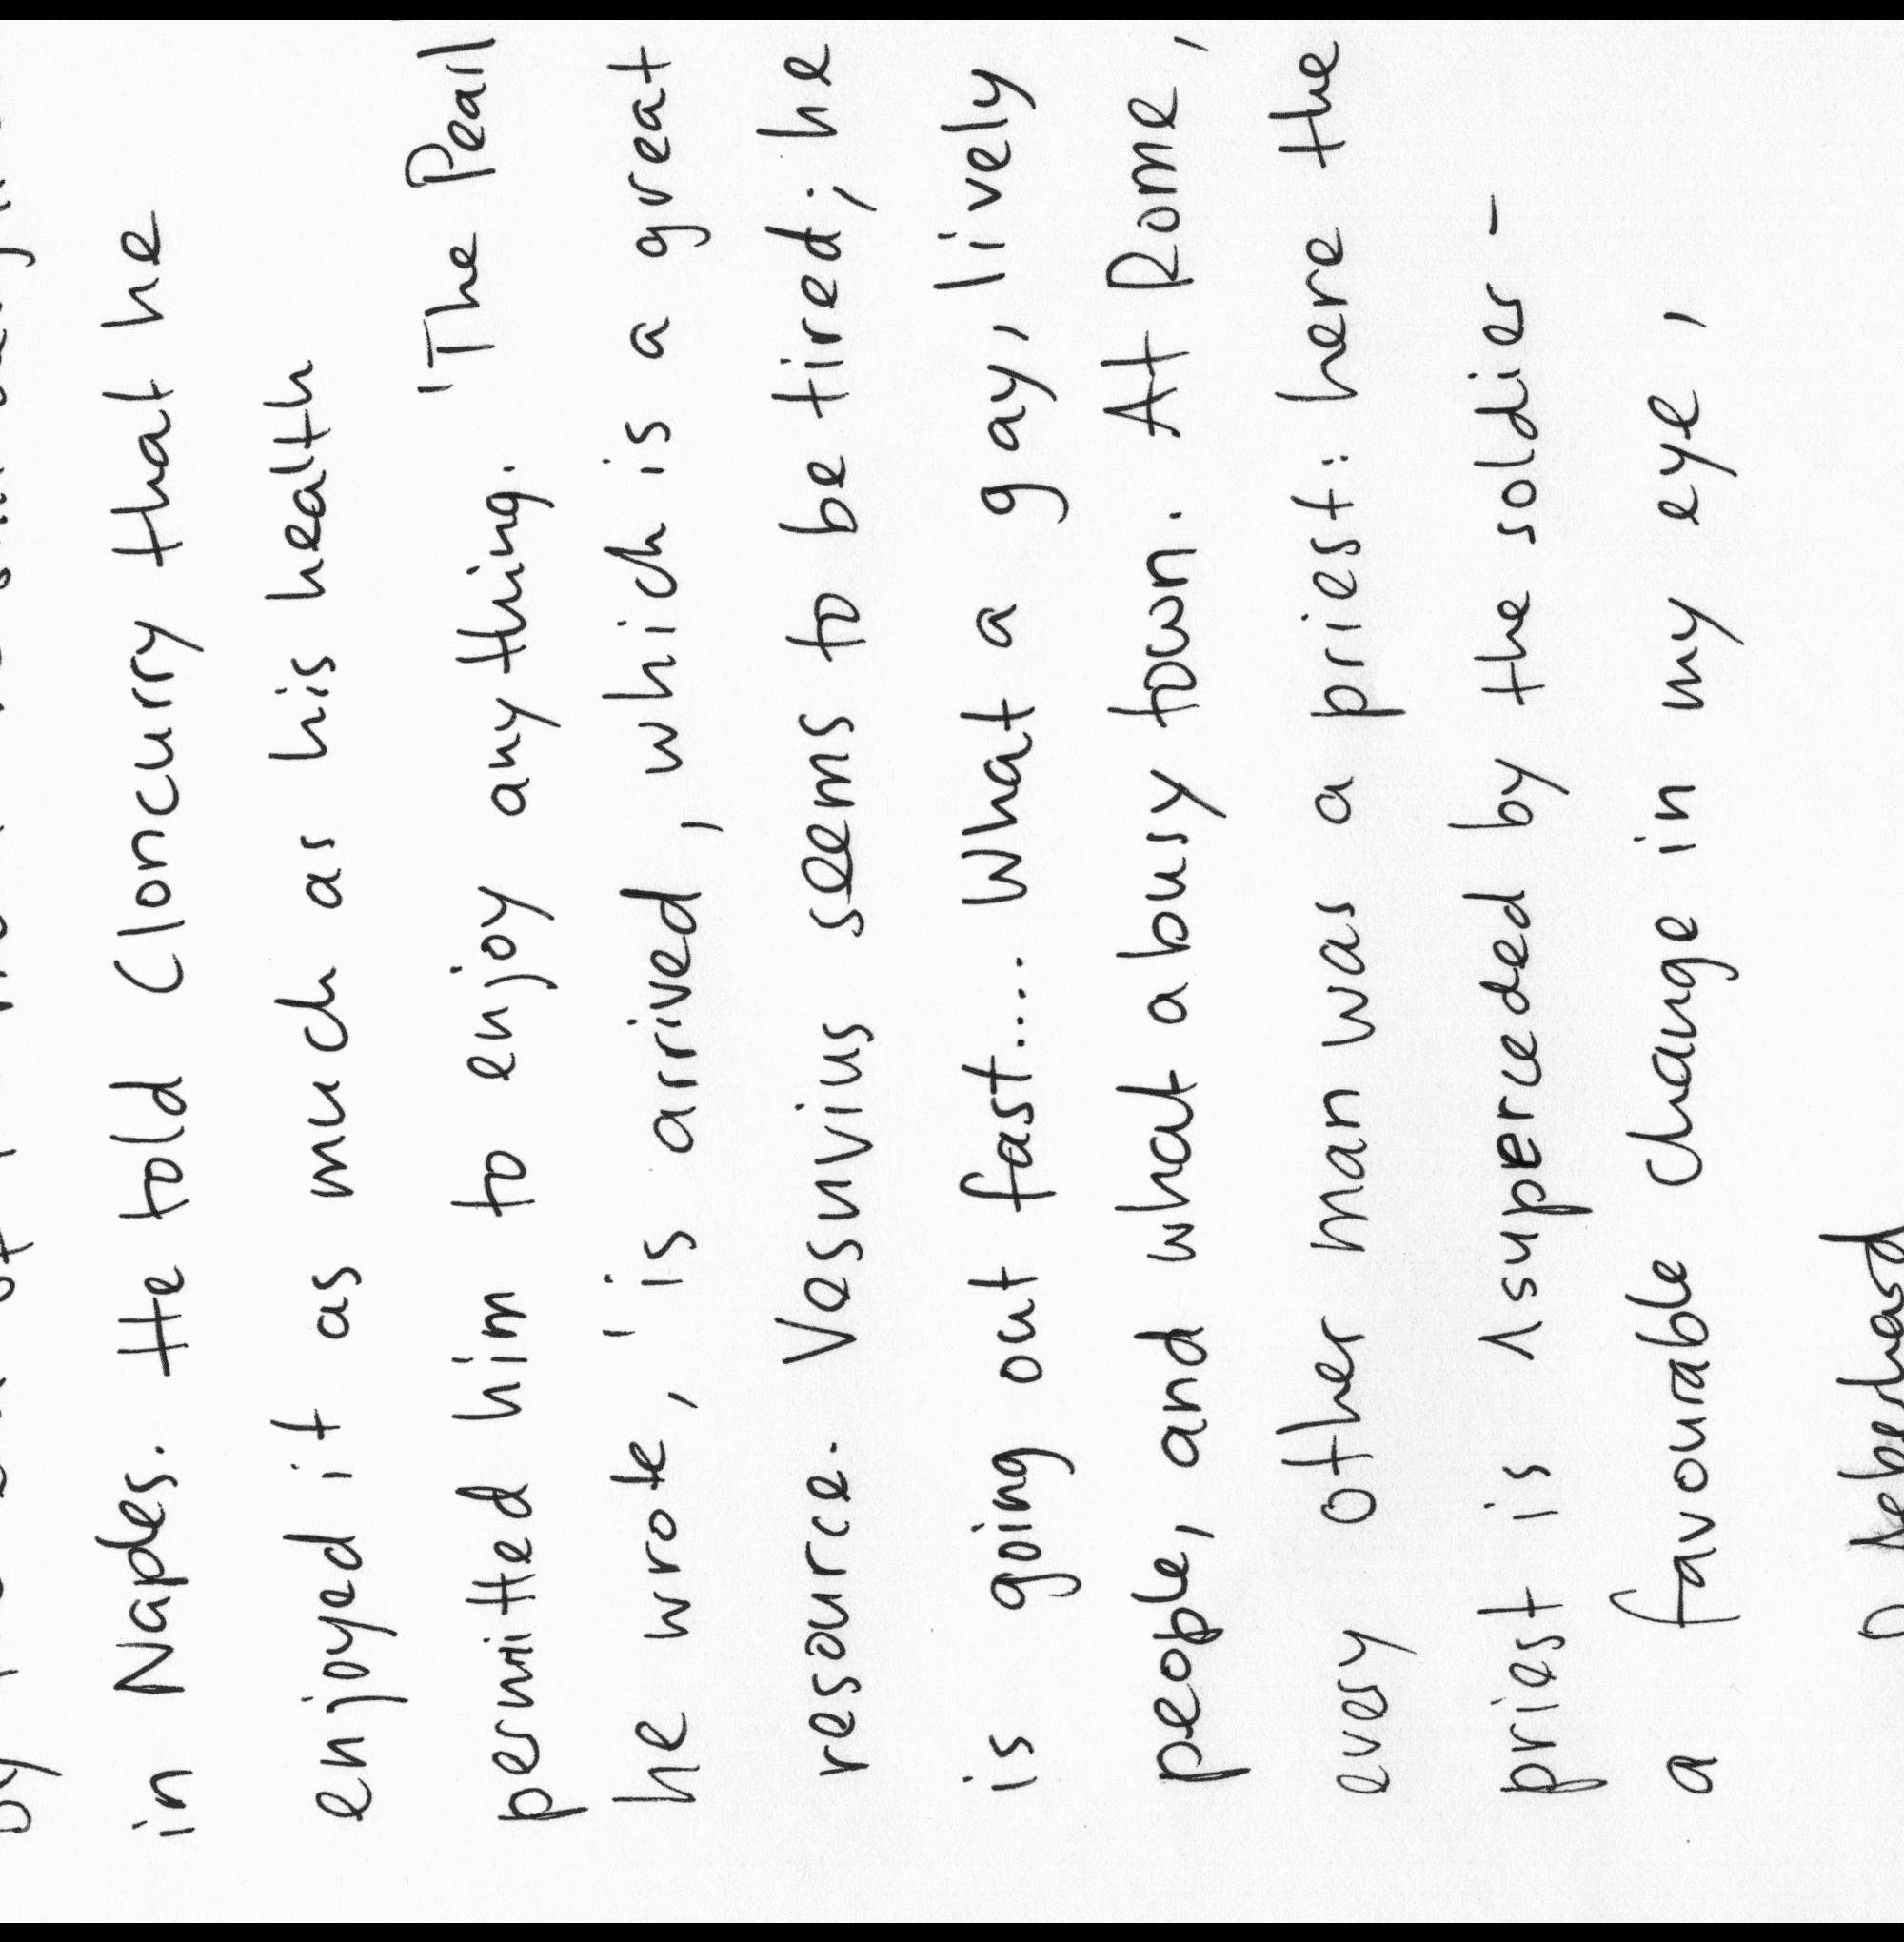 in Naples. He told Cloncurry that he
enjoyed it as much as his health
permitted him to enjoy anything. 'The Pearl
he wrote, 'is arrived, which is a great
resource. Vesuvius seems to be tired; he
is going out fast.... What a gay, lively
people, and what a busy town. At Rome,
every other man was a priest: here the
priest is superceded by the soldier -
a favourable change in my eye,